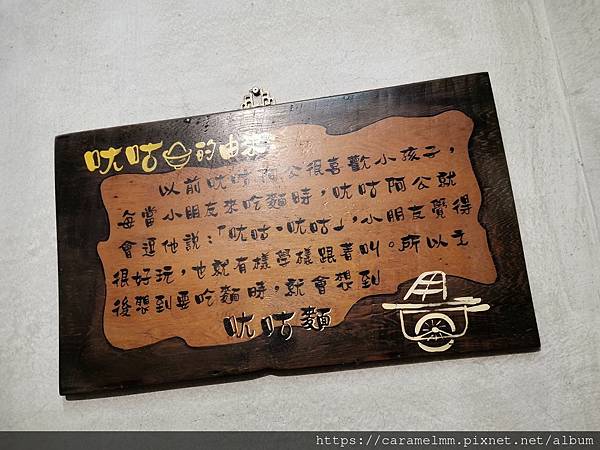 呅咕的由來
以前呅咕阿公很喜歡小孩子，
每當小朋友來吃麵時，呅咕阿公就
會逗他說：「呅咕、呅咕」，小朋友覺得
很好玩，也就有樣學樣跟著叫。所以主
後想到要吃麵時，就會想到
呅咕麵
https://caramelmm.pixnet.net/album